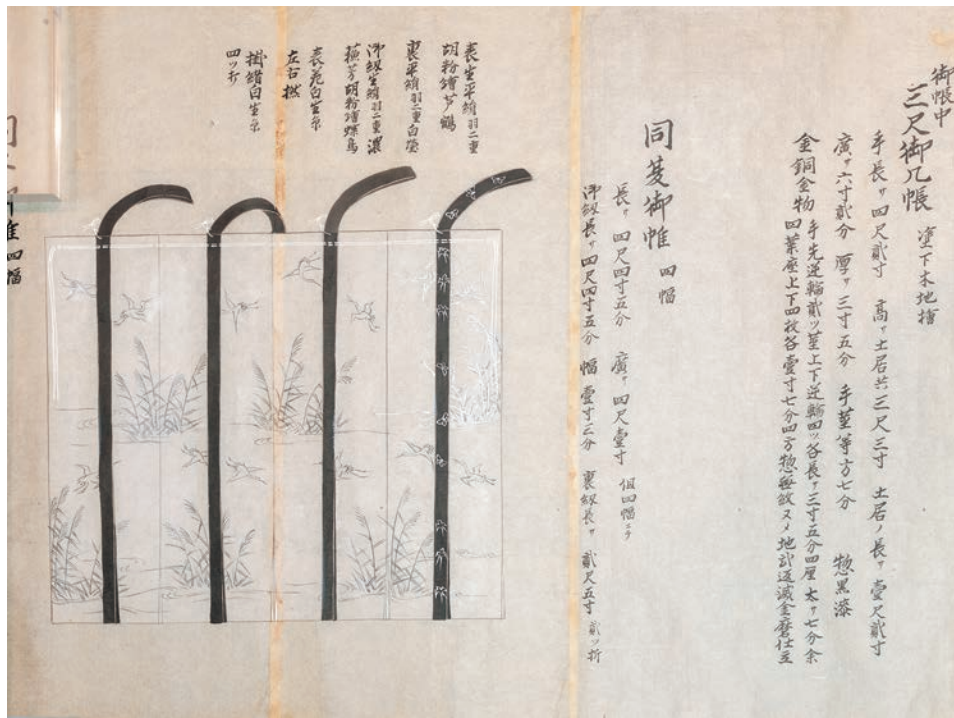 御帳中
三尺御几帳 塗下木地檜
手長サ四尺貳寸 高サ土居共三尺三寸 土居ノ長サ壹尺貳寸
廣サ六寸貳分 厚サ三寸五分 手莖等方七分 惣黒漆
金銅金物 手先逆輪貳ツ莖上下逆輪四ツ各長サ三寸五分四厘 太サ七分余
四葉座上下四枚各壹寸七分四方惣無紋スメ地 滅金磨仕立
同夏御帷 四幅
長サ四尺四寸五分 廣サ四尺壹寸 但四幅ニテ
御紐長サ四尺四寸五分 幅壹寸三分 裏紐長サ貳尺五寸 貳ツ折
表生平絹羽二重
胡粉繪芦鶴
裏平絹羽二重白瑩
御紐生絹羽二重濃
蘇芳胡粉繪蝶鳥
表花白生糸
左右撚
掛緒白生糸
四ツ折
帷 四幅